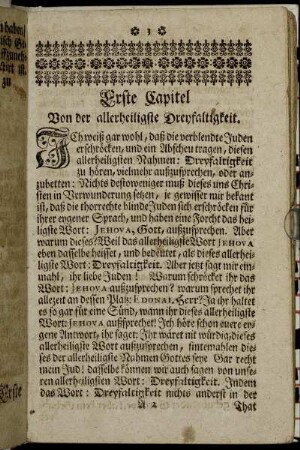 3
Erste Capitel
Von der allerheiligste Dreyfaltigkeit.
ICh weiß gar wohl, daß die verblendte Juden
erschröcken, und ein Abscheu tragen, diesen
allerheiligsten Nahmen: Dreyfaltigkeit
zu hören, vielmehr außzusprechen, oder an-
zubetten: Nichts destoweniger muß dieses uns Chri-
sten in Verwunderung setzen, je gewisser mir bekant
ist, daß die thorrechte blinde Juden sich erschröcken für
ihrer eygener Sprach, und haben eine Forcht das hei-
ligste Wort: JEHOVA, Gott, außzusprechen. Aber
warum dieses? Weil das allerheiligste Wort JEHOVA
eben dasselbe heisset, und bedeutet, als dieses allerheili-
ste Wort: Dreyfaltigkeit. Aber jetzt sagt mir ein-
mahl, ihr liebe Juden! Warum schröcket ihr das
Wort: JEHOVA außzusprechen? warum sprechet ihr
allezeit an dessen Platz: EDONAI, Herr? Ja ihr haltet
es so gar für eine Sünd, wann ihr dieses allerheiligste
Wort: JEHOVA außsprechet! Ich höre schon euere ey-
gene Antwort, ihr saget: Ihr wäret nit würdig, dieses
allerheiligste Wort außzusprechen, sintemahlen die-
ses der allerheiligste Nahmen Gottes seye Gar recht
mein Jud! dasselbe können wir auch sagen von unse-
ren allerheiligsten Wort: Dreyfaltigkeit. Indem
das Wort: Dreyfaltigkeit nichts anders in der
A 2 That
haben
zu
Erste